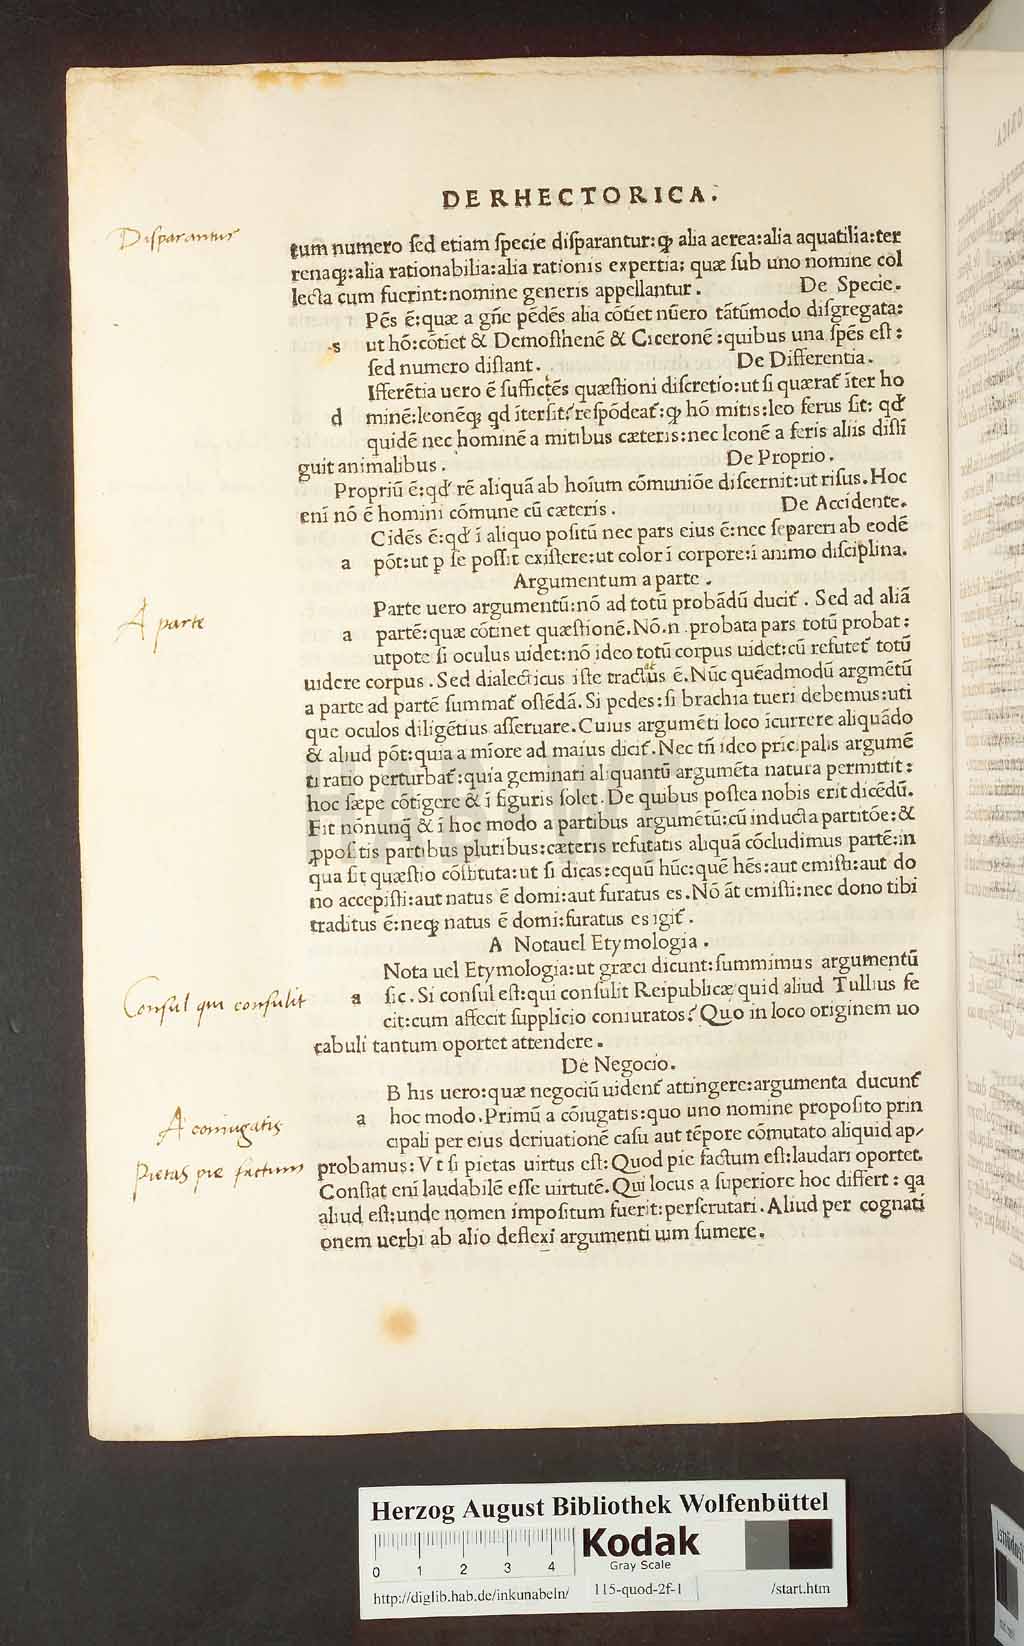 DE RHECTORICA.
Disparantur
tum numero sed etiam specie disparantur: ꝙ alia aerea:alia aquatilia:ter
renaqꝫ:alia rationabilia:alia rationis expertia: quæ sub uno nomine col
lecta cum fuerint:nomine generis appellantur. De Specie.
Pēs ē:quæ a gn̄e pēdēs alia cōtiet nūero tātūmodo disgregata:
s ut hō:cōtiet & Demosthenē & Ciceronē:quibus una spēs est:
sed numero distant. De Differentia.
Ifferētia uero ē sufficiēs quæstioni discretio:ut si quærat̄ īter ho
d minē:leonēqꝫ qd ītersit:respōdeat̄:ꝙ hō mitis:leo ferus sit: qd̄
quidē nec hominē a mitibus cæteris:nec leonē a feris aliis disti
guit animalibus. De Proprio.
Propriū ē:qd̄ rē aliquā ab hoīum cōmuniōe discernit:ut risus.Hoc
enī nō ē homini cōmune cū cæteris. De Accidente.
Cidēs ē:qd̄ ī aliquo positū nec pars eius ē:nec separeri ab eodē
a pōt:ut ꝑ se possit existere:ut color ī corpore:ī animo disciplina.
Argumentum a parte.
A parte
Parte uero argumentū:nō ad totū probādū ducit̄. Sed ad aliā
a partē:quæ cōtinet quæstionē.Nō.n.probata pars totū probat:
utpote si oculus uidet:nō ideo totū corpus uidet:cū refutet̄ totū
uidere corpus. Sed dialecticus iste tractatus ē.Nūc quēadmodū argmētū
a parte ad partē summat̄ ostēdā. Si pedes:si brachia tueri debemus:uti
que oculos diligētius asseruare.Cuius argumēti loco īcurrere aliquādo
& aliud pōt:quia a mīore ad maius dicit̄.Nec tn̄ ideo prīcipalis argumē
ti ratio perturbat̄:quia geminari aliquantū argumēta natura permittit:
hoc sæpe cōtigere & ī figuris solet. De quibus postea nobis erit dicēdū.
Fit nōnunq̄ & ī hoc modo a partibus argumētū:cū inducta partitōe:&
ꝓpositis partibus pluribus:cæteris refutatis aliquā cōcludimus partē:in
qua sit quæstio cōstituta:ut si dicas:equū hūc:quē hēs:aut emisti:aut do
no accepisti:aut natus ē domi:aut furatus es.Nō āt emisti:nec dono tibi
traditus ē:neqꝫ natus ē domi:furatus es igit̄.
A Notauel Etymologia.
Nota uel Etymologia:ut græci dicunt:summimus argumentū
Consul qui consulit
a sic. Si consul est:qui consulit Reipublicæ quid aliud Tullius fe
cit:cum affecit supplicio coniuratos? Quo in loco originem uo
cabuli tantum oportet attendere.
De Negocio.
B his uero:quæ negociū uident̄ attingere:argumenta ducunt̄
A coniugatis
a hoc modo.Primū a cōiugatis:quo uno nomine proposito prin
cipali per eius deriuationē casu aut tēpore cōmutato aliquid ap⸗
Pietas pie factum
probamus: Vt si pietas uirtus est:Quod pie factum est:laudari oportet.
Constat enī laudabilē esse uirtutē.Qui locus a superiore hoc differt: qa
aliud est:unde nomen impositum fuerit:perscrutari.Aliud per cognati
onem uerbi ab alio deflexi argumenti uim sumere.
HAB-WF
Herzog August Bibliothek Wolfenbüttel
0 1 2 3 4
Kodak
Gray Scale
http://diglib.hab.de/inkunabeln/ 115-quod-2f-1 /start.htm